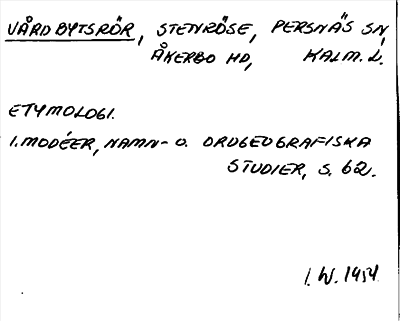 VÅRDBYTSRÖR, STENRÖSE, PERSNÄS SN,
ÅKERBO HD, KALM. L.
ETYMOLOGI.
I. MODÉER, NAMN- O. ORDGEOGRAFISKA
STUDIER, S. 62.
I. W. 1954